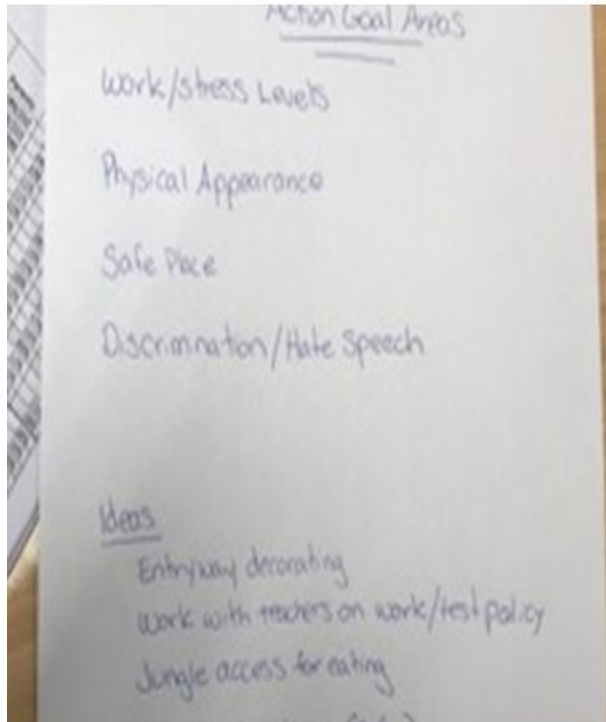 Action Goal Areas
Work/stress Levels
Physical Appearance
Safe Place
Discrimination/Hate Speech
Ideas
Entryway decorating
Work with teachers on work/test policy
Jungle access for eating